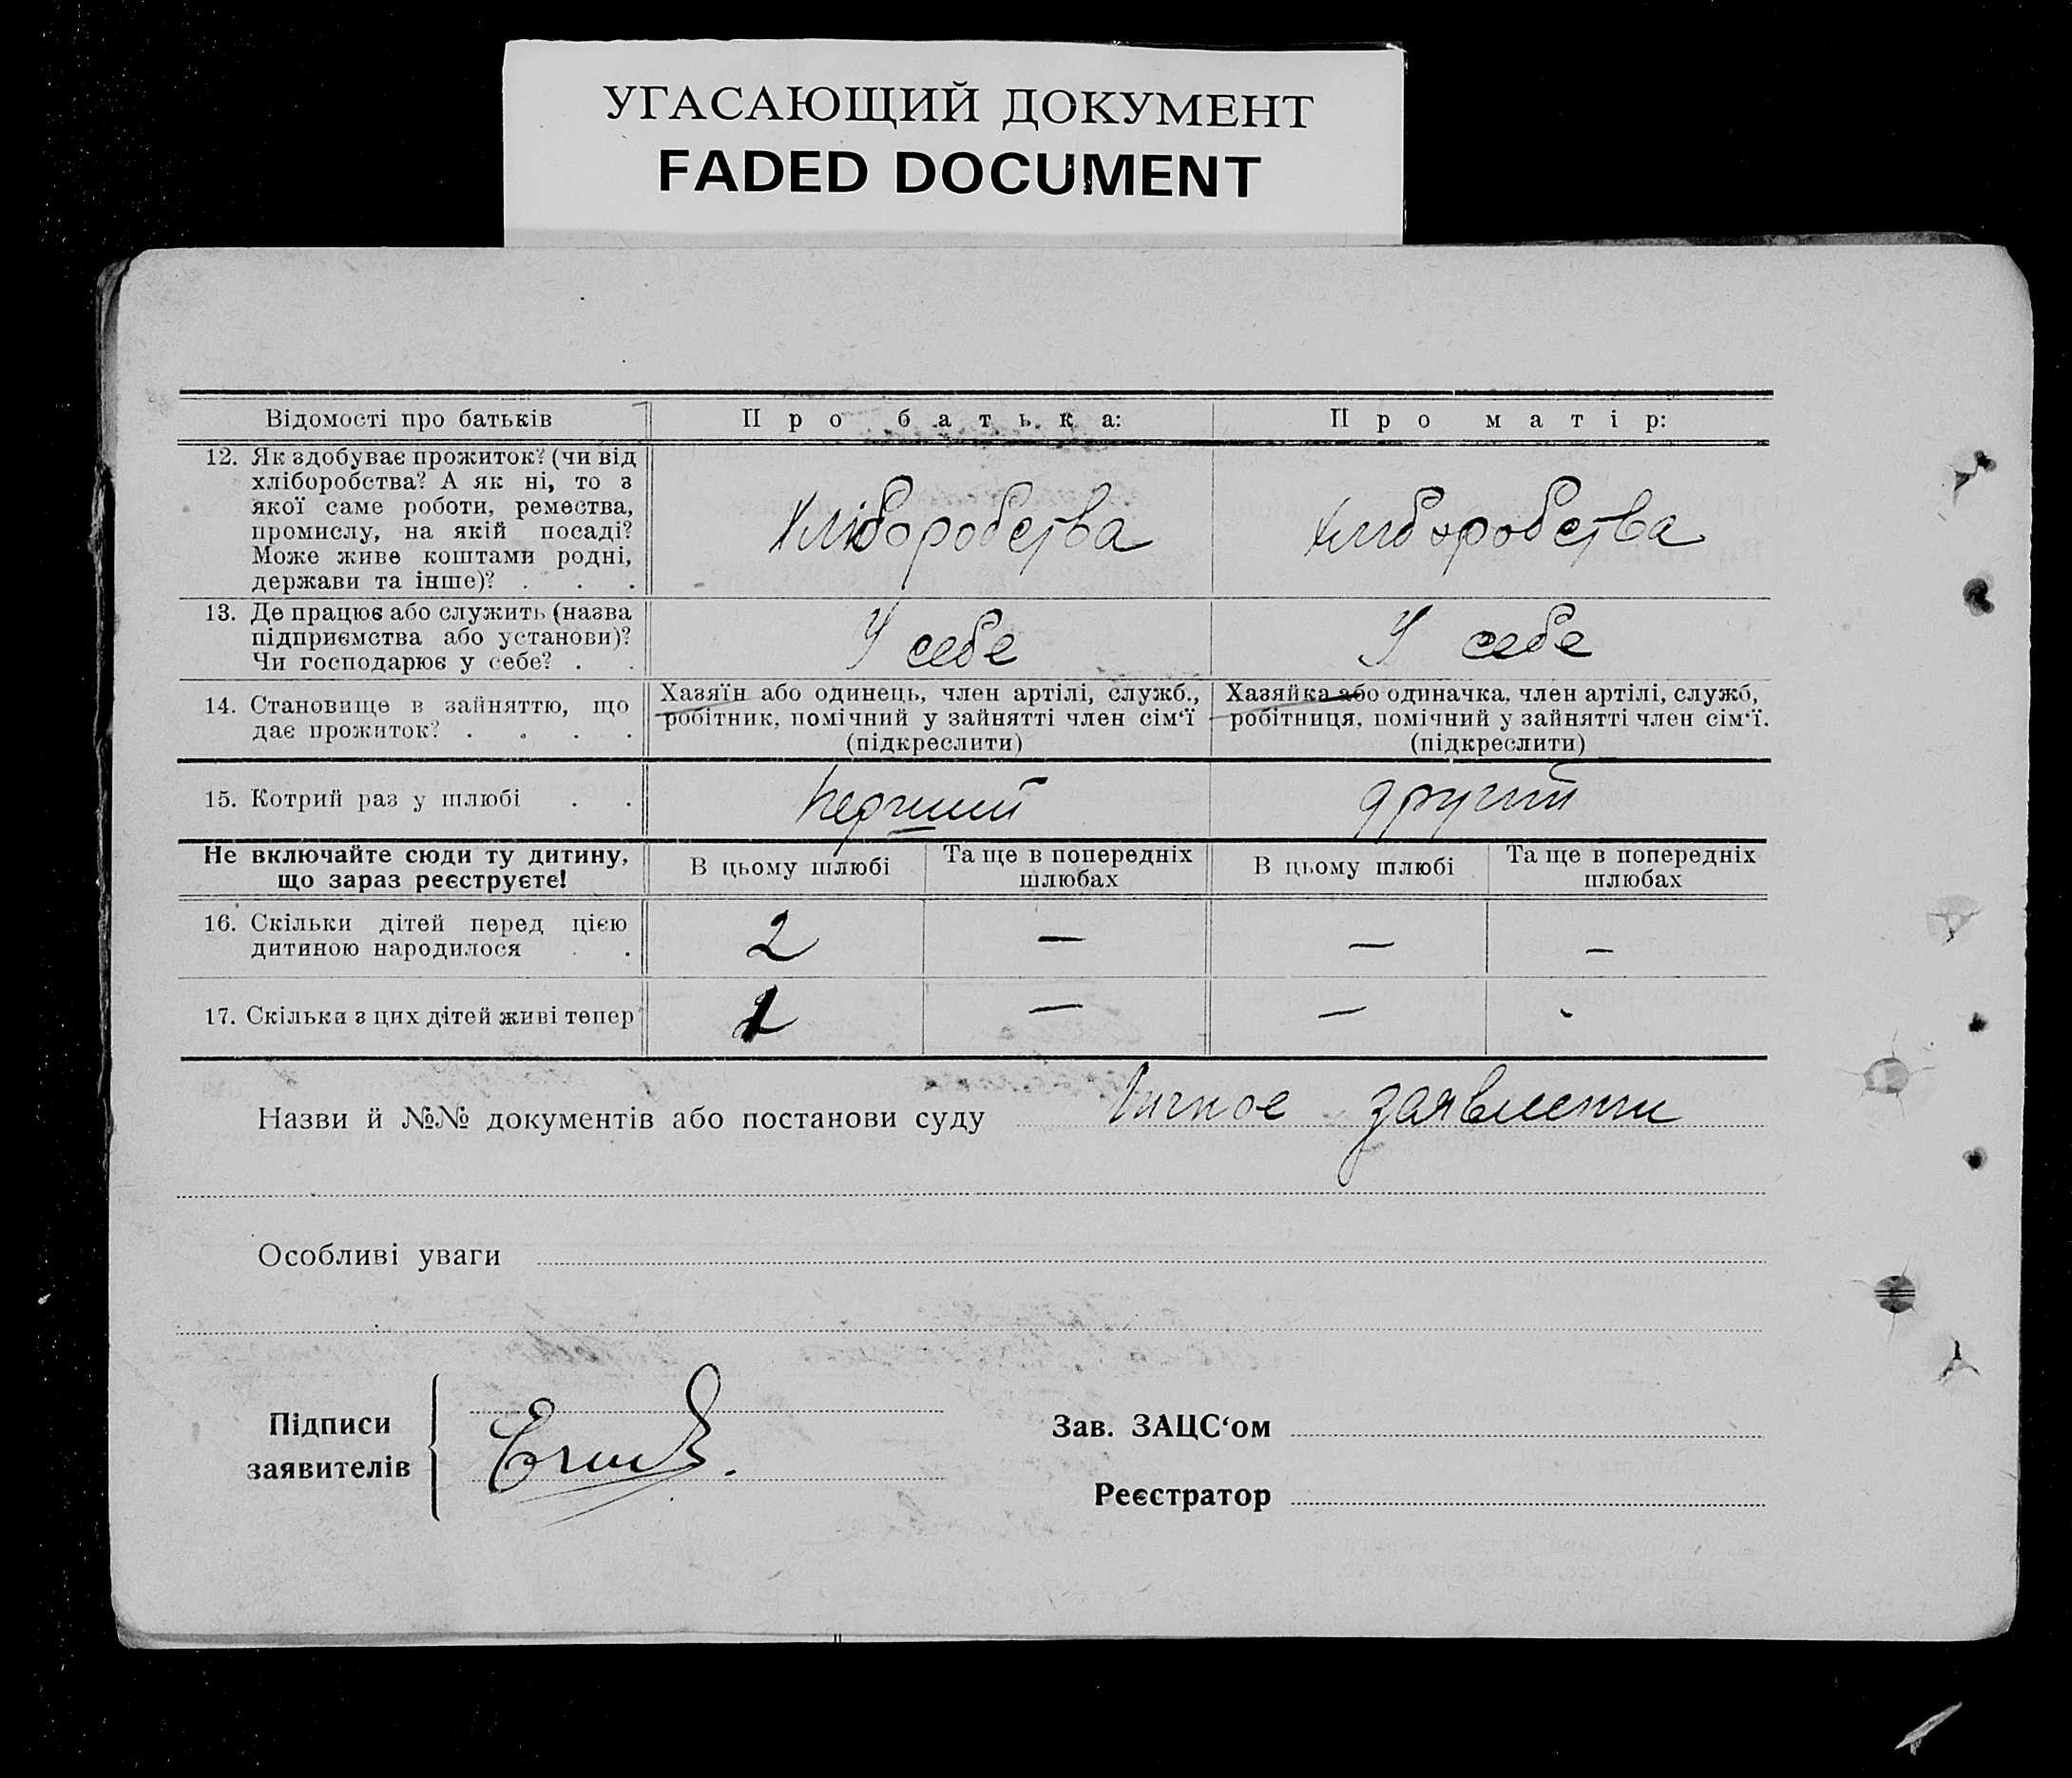 УГАСАЮЩИЙ ДОКУМЕНТ
FADED DOCUMENT
Відомості про батьків
Про батька:
Про матір:
12. Як здобуває прожиток? (чи від
хліборобства? А як ні, то з
якої саме роботи, ремества,
промислу, на якій посаді?
Може живе коштами родні,
держави та інше)? . . .
хліборобства
хліборобства
13. Де працює або служить (назва
підприємства або установи)?
Чи господарює у себе? . .
У себе
У себе
14. Становище в зайняттю, що
дає прожиток? . . . .
Хазяїн або одинець, член артілі, служб.,
робітник, помічний у зайнятті член сім‘ї
(підкреслити)
Хазяйка або одиначка, член артілі, служб,
робітниця, помічний у зайнятті член сім‘ї.
(підкреслити)
15. Котрий раз у шлюбі . .
перший
другий
Не включайте сюди ту дитину,
що зараз реєструєте!
В цьому шлюбі
Та ще в попередніх
шлюбах
В цьому шлюбі
Та ще в попередніх
шлюбах
16. Скільки дітей перед цією
дитиною народилося . .
2
—
—
—
17. Скілька з цих дітей живі тепер
—
—
Назви й №№ документів або постанови суду
личное заявлении
Особливі уваги
Підписи
заявителів
Зав. ЗАЦС‘ом
Реєстратор